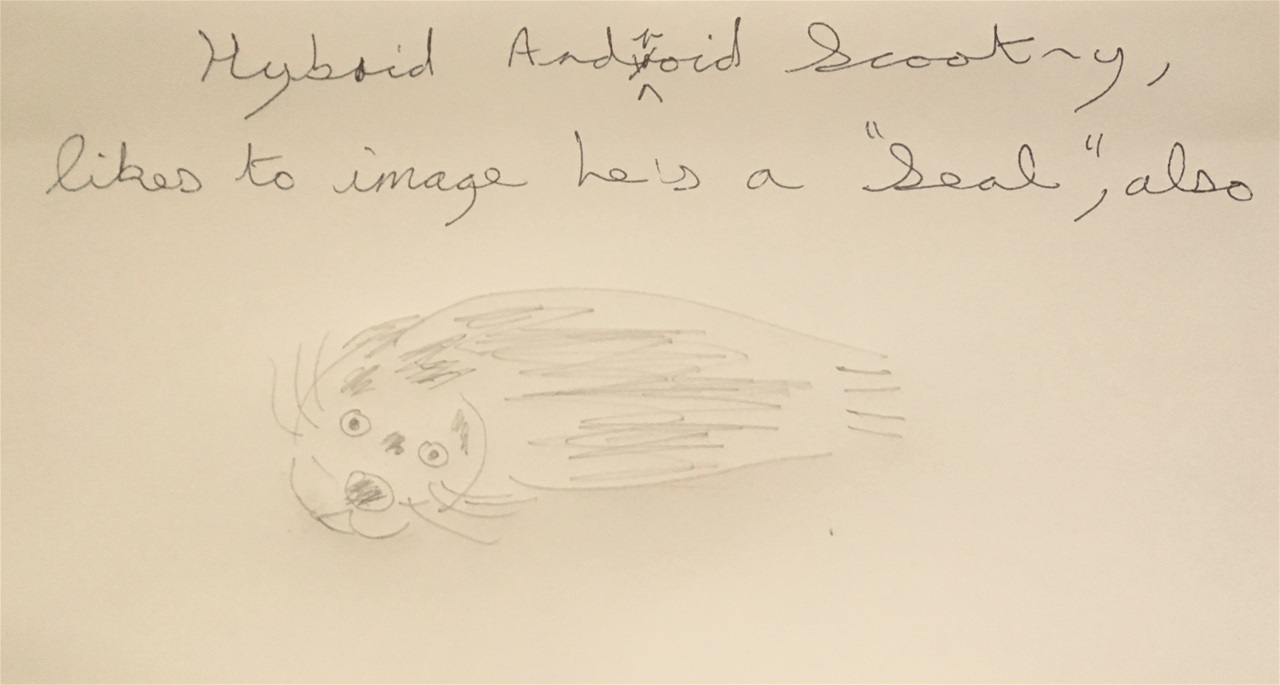 Hybrid Android Scootry,
likes to image he's a "Seal", also